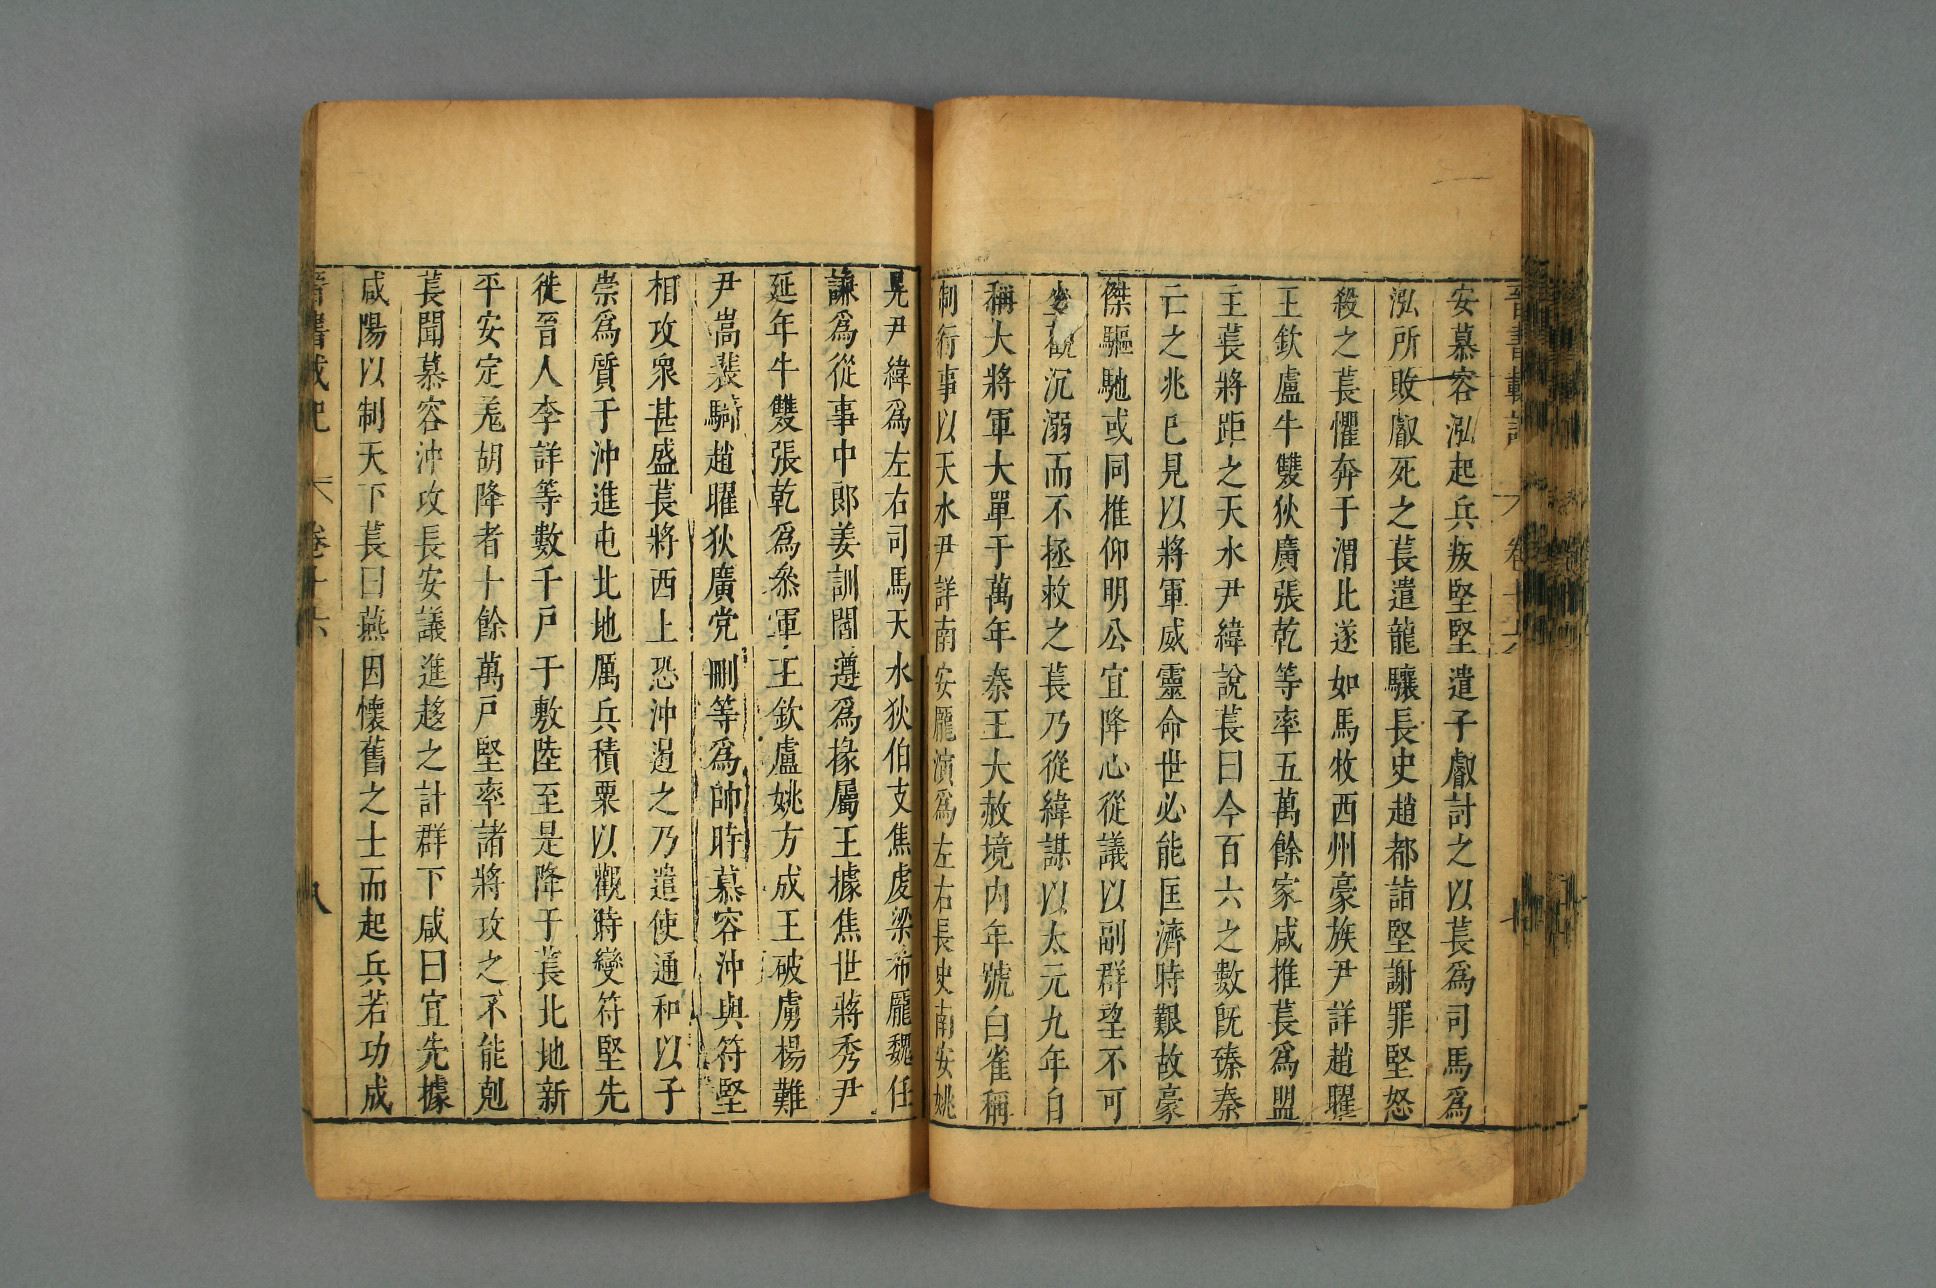 晉書載記 卷十六 七
安慕容泓起兵叛堅堅遣子叡討之以萇爲司馬爲
泓所敗叡死之萇遣龍驤長史趙都詣堅謝罪堅怒
殺之萇懼奔于渭北遂如馬牧西州豪族尹詳趙曜
王欽盧牛雙狄廣張乾等率五萬餘家咸推萇爲盟
主萇將距之天水尹緯說萇曰今百六之數旣臻秦
亡之兆已見以將軍威靈命世必能匡濟時艱故豪
傑驅馳或同推仰明公宜降心從議以副群望不可
坐觀沉溺而不拯救之萇乃從緯謀以太元九年自
稱大將軍大單于萬年秦王大赦境內年號白雀稱
制行事以天水尹詳南安龐演爲左右長史南安姚
晃尹緯爲左右司馬天水狄伯支焦虔梁希龐魏任
謙爲從事中郞姜訓閻遵爲掾屬王據焦世蔣秀尹
延年牛雙張乾爲叅軍王欽盧姚方成王破虜楊難
尹嵩裴騎趙曜狄廣党刪等爲帥時慕容沖與苻堅
相攻衆甚盛萇將西上恐沖遏之乃遣使通和以子
崇爲質于沖進屯北地厲兵積粟以觀時變苻堅先
徙晉人李詳等數千戶于敷陸至是降于萇北地新
平安定羗胡降者十餘萬戶堅率諸將攻之不能剋
萇聞慕容沖攻長安議進趍之計群下咸曰宜先據
咸陽以制天下萇曰燕因懷舊之士而起兵若功成
晉書載記 卷十六 八